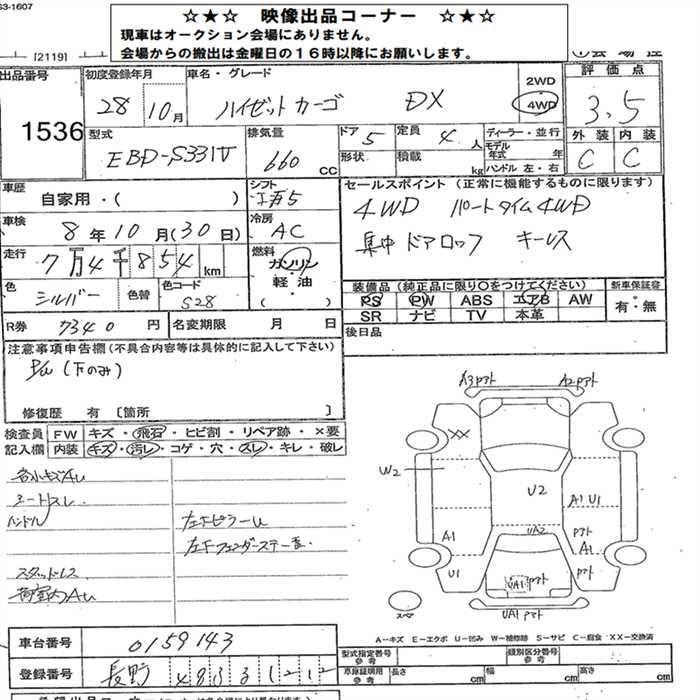 S3-1607
☆★☆ 映像出品コーナー ☆★☆
現車はオークション会場にありません。
会場からの搬出は金曜日の16時以降にお願いします。
[2119]
出品番号
1536
初度登録年月
28年10月
車名・グレード
ハイゼットカーゴ DX
2WD
4WD
評価点
3.5
外装 内装
C C
型式
EBD-S331V
排気量
660 cc
ドア 5
定員 4 人
形状
積載 kg
ディーラー・並行
モデル年式 年
ハンドル 左・右
車歴
自家用・( )
シフト
車検
8年10月(30日)
冷房
AC
走行
7万4千854km
燃料
ガソリン・軽油
色
シルバー
色替
色コード
S28
R券 7340円
名変期限 月 日
セールスポイント (正常に機能するものに限ります)
4WD パートタイム4WD
集中ドアロック キーレス
装備品 (純正品に限り○をつけてください)
PS PW ABS エアB AW
SR ナビ TV 本革
新車保証書
有・無
後日品
注意事項申告欄(不具合内容等は具体的に記入して下さい)
P/W (下のみ)
修復歴 有 [箇所 ]
検査員記入欄
FW キズ・飛石・ヒビ割・リペア跡・×要
内装 キズ・汚レ・コゲ・穴・スレ・キレ・破レ
各小キズAU
シートスレ
ハンドル
スタッドレス
荷室内AU
左下ピラーU
左下フェンダーステー歪
A3 Pアト
A2 Pアト
XX
W2
U2
A1 U1
A1
UA2
Pアト
A1
U1
UA1 Pアト
Pアト
UA1 Pアト
スペア
A-キズ E-エクボ U-凹み W-補修跡 S-サビ C-腐食 XX-交換済
車台番号 0159143
登録番号 長野 483
型式指定番号 参考
類別区分番号 参考
車庫証明用 参考
長さ cm
幅 cm
高さ cm